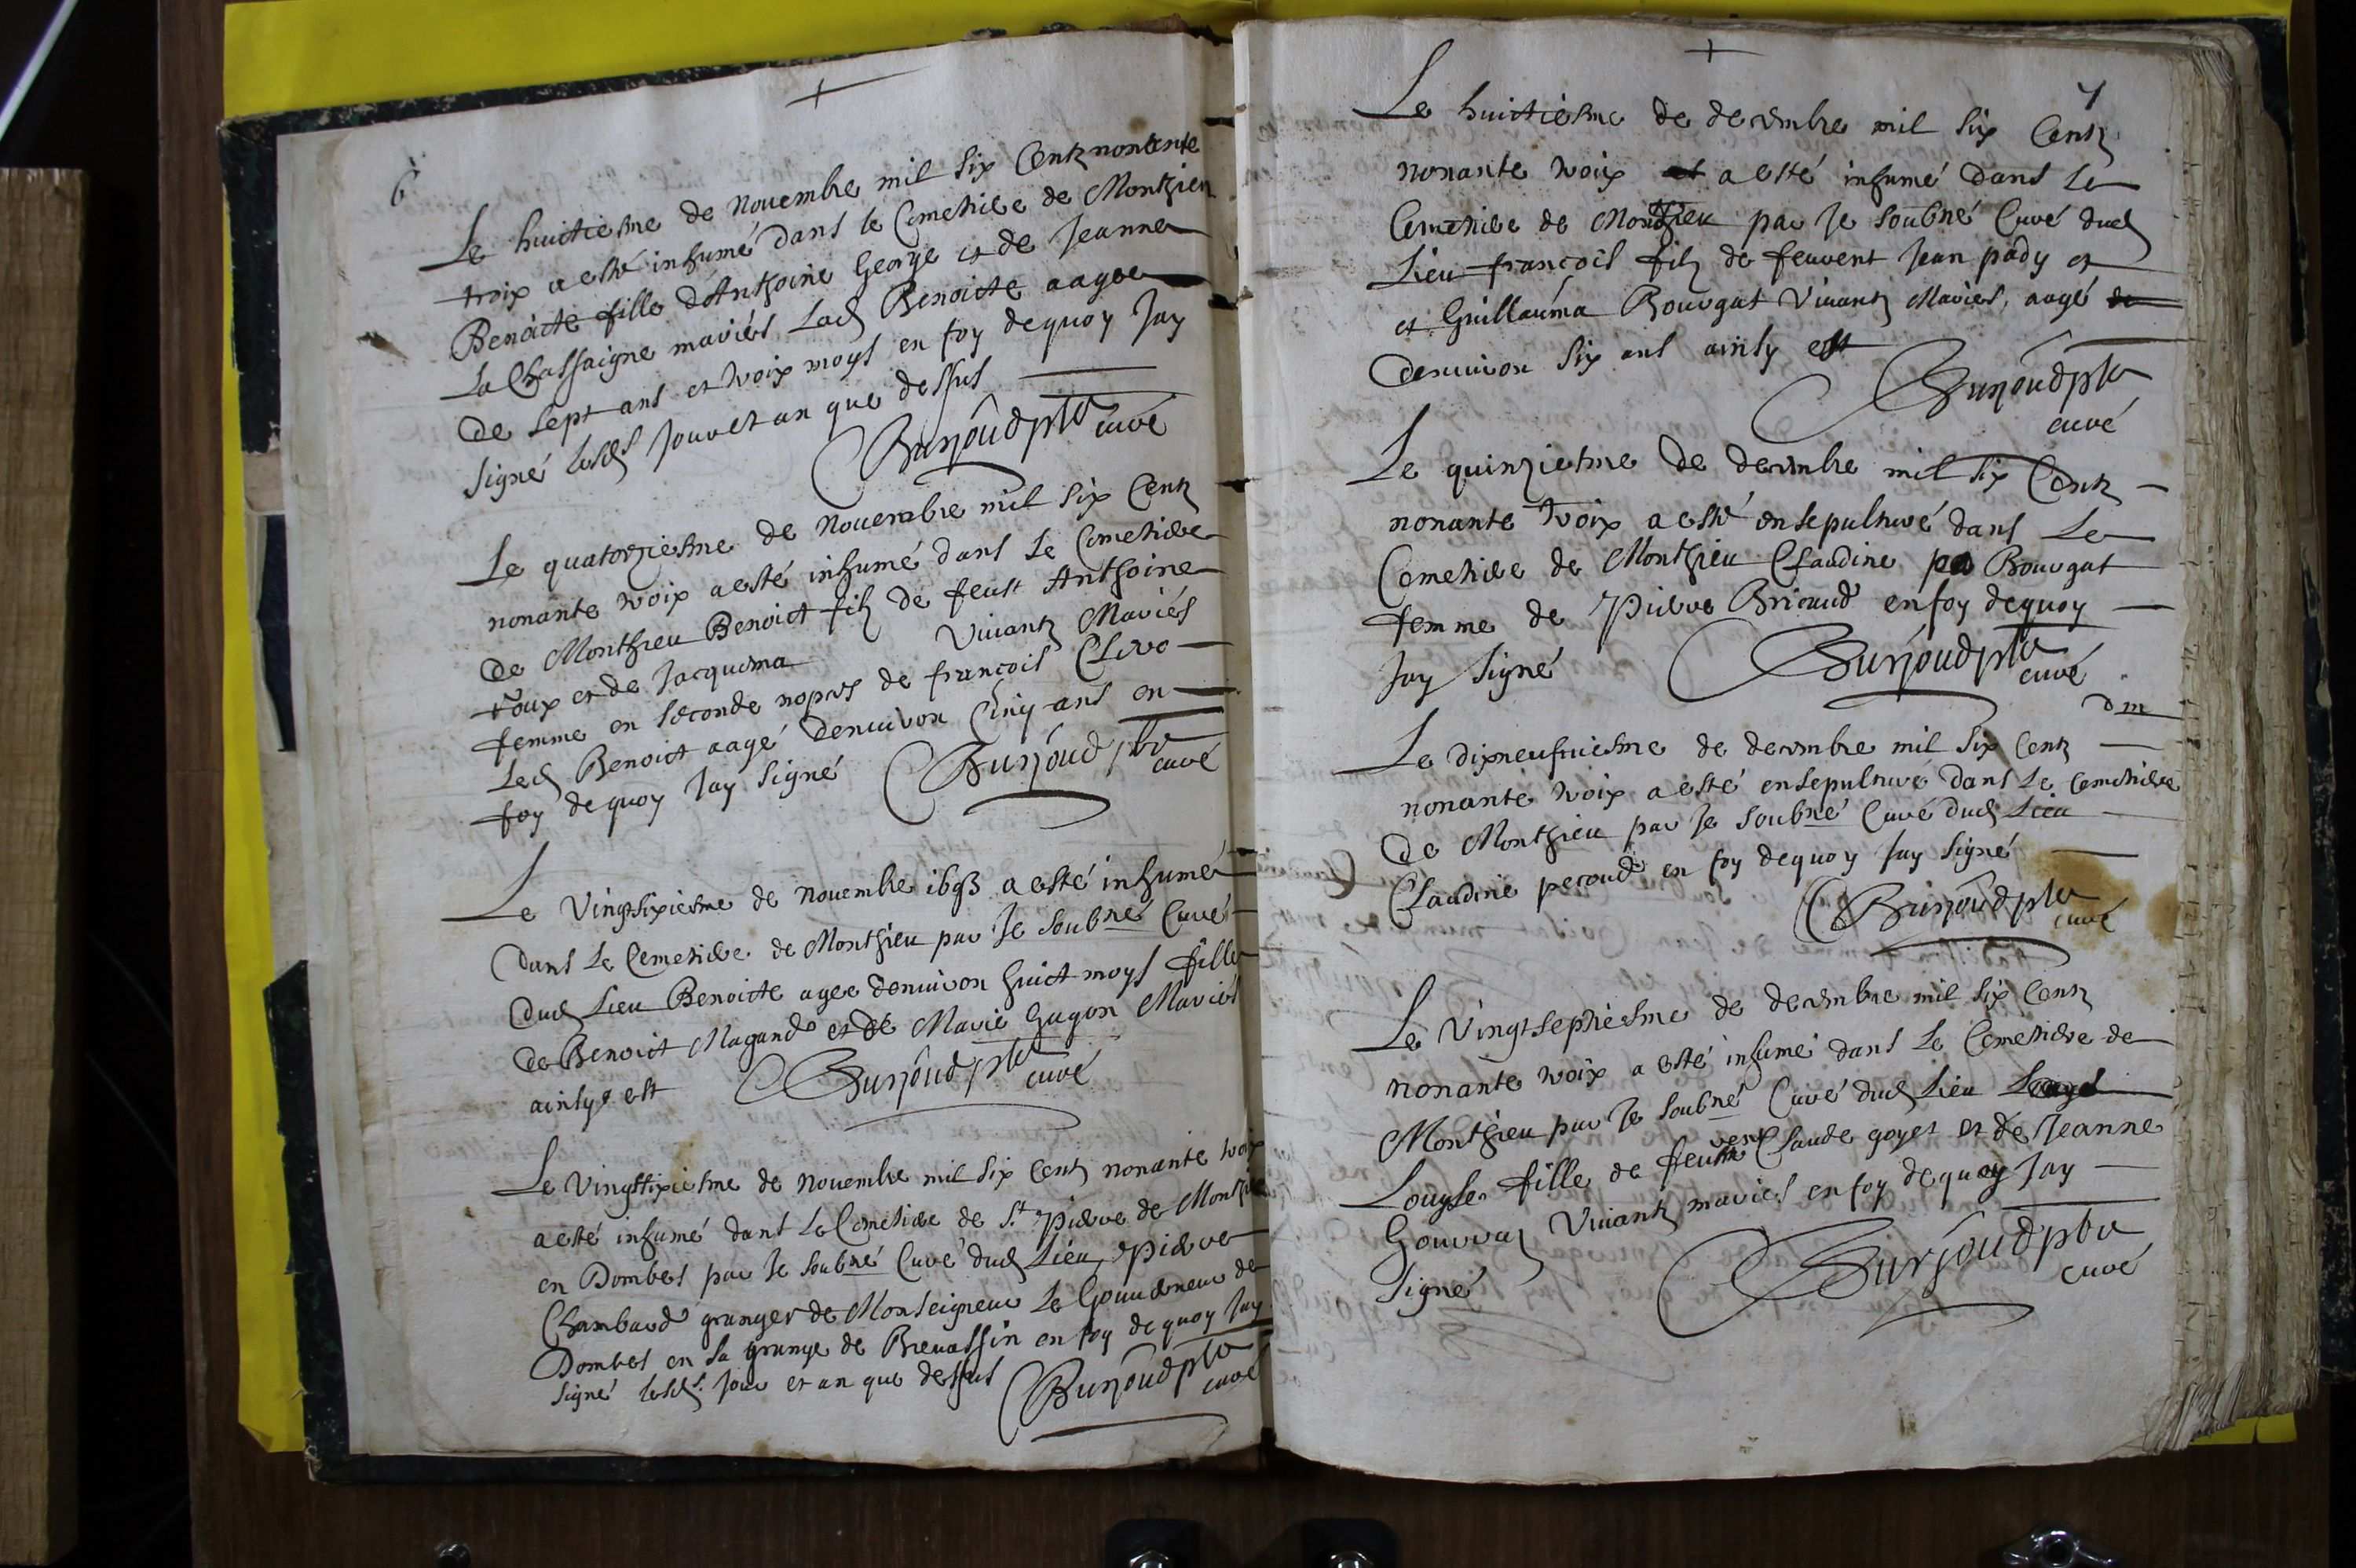 6
Le huictiesme de Nouembre mil six Centz nonante
troix a esté inhumé dans le Cemetiere de Monthieu
Benoicte fille d'Anthoine George et de Jeanne
La Chassaigne mariés Lad Benoicte aagee
de sept ans et troix moys en foy dequoy Jay
signé lesd Jour et an que dessus
Burjoud pbr curé
Le quatorziesme de Nouembre mil six Centz
nonante troix a esté inhumé dans Le Cemetiere
de Monthieu Benoict filz de feust Anthoine
Foux et de Jacquema Viuantz Mariés
femme en seconde nopces de françois Clero
Led Benoict aagé denuiron Cinq ans en
foy de quoy Jay signé Burjoud pbr
curé
Le Vingtsixiesme de Nouembre 1693 a esté inhumé
dans Le Cemetiere de Monthieu par Je soubné Curé
dud Lieu Benoicte agee denuiron huict moys fille
de Benoict Magand et de Marie Gugon Mariés
ainsy est Burjoud pbr curé
Le Vingtsixiesme de Nouembre mil six Centz nonante troix
a esté inhumé dans Le Cemetiere de St Pierre de Monthieu
en Dombes par Je soubné Curé dud Lieu Pierre
Chambard granger de Monseigneur Le Gouuerneur de
Dombes en sa grange de Breuassin en foy de quoy Jay
signé lesds Jour et an que dessus Burjoud pbr
curé
7
Le huictiesme de decembre mil six Centz
nonante troix et a esté inhumé dans Le
Cemetiere de Monthieu par Je soubné Curé dud
Lieu françois filz de feuvent Jean pady et
et Guillauma Bourgat Viuantz Mariés, aagé de
denuiron six ans ainsy est
Burjoud pbr
curé
Le quinziesme de decembre mil six Centz
nonante troix a esté ensepulturé dans Le
Cemetiere de Monthieu Claudine Bourgat
femme de Pierre Bricaud en foy dequoy
Jay signé Burjoud pbr
curé
Le dixneufuiesme de decembre mil six Centz
nonante troix a esté ensepulturé dans Le Cemetiere
de Monthieu par Je soubné Curé dud Lieu
Claudine peroud en foy dequoy Jay signé
Burjoud pbr
curé
Le Vingtseptiesme de decembre mil six Centz
nonante troix a esté inhumé dans Le Cemetiere de
Monthieu par Je soubné Curé dud Lieu
Louyse fille de feuvent Claude goyet et de Jeanne
Viuantz mariés en foy dequoy Jay
signé Burjoud pbr
curé